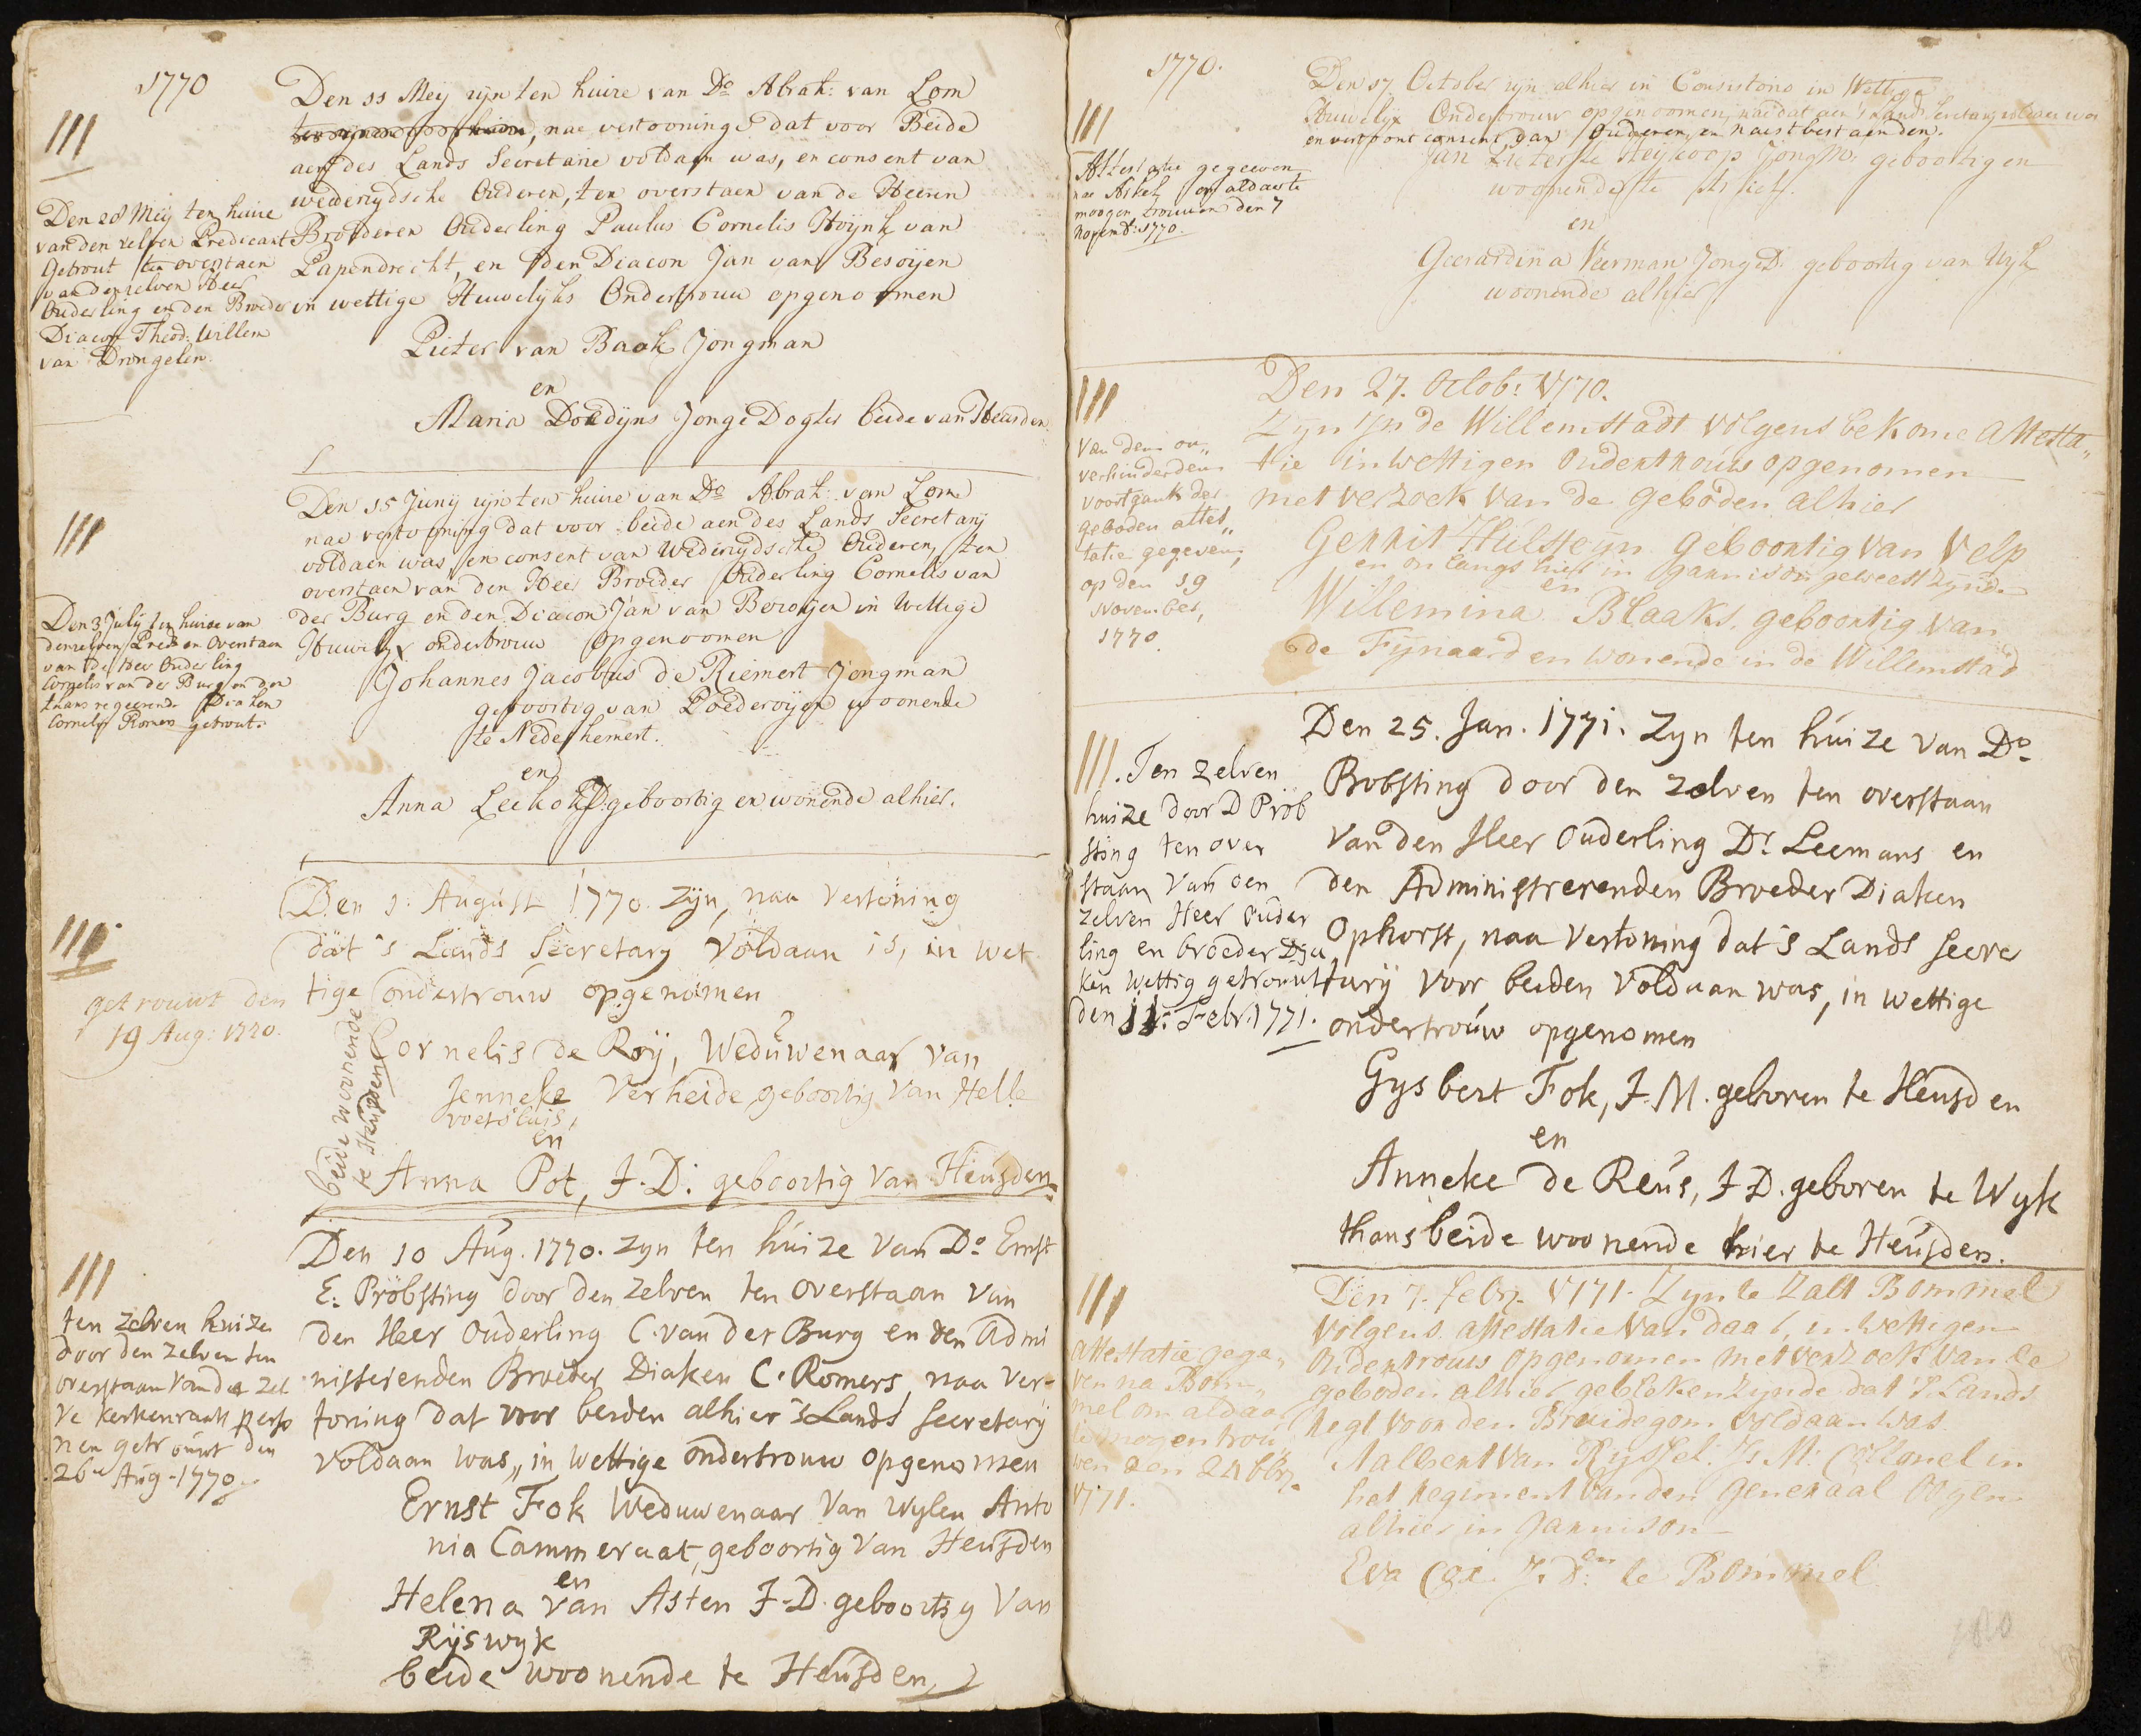 1770
Den 11 Mey zijn ten huize van Do Abrah: van Lom
nae vertooninge dat voor Beide
aen des Lands Secretarie voldaen was, en consent van
wederzydsche Ouderen, ten overstaen van de Heeren
Broederen Ouderling Paulus Cornelis Hoijnk van
Papendrecht, en den Diacon Jan van Besoijen
in wettige Huwelijks Ondertrouw opgenoomen
Pieter van Baak Jongman
en
Maria Doedijns Jonge Dogter beide van Heusden
III
Den 28 Meij ten huize
van den zelven Predicant
Getrout ten overstaen
van denzelven Heer
Ouderling en den Broeder
Diacon Theod: Willem
van Drongelen.
Den 15 Junij zijn ten huize van Do Abrah: van Lom
nae vertooning dat voor beide aen des Lands Secretarij
voldaen was, en consent van Wederzydsche Ouderen, ten
overstaen van den Heer Broeder Ouderling Cornelis van
der Burg en den Diacon Jan van Bezoijen in Wettige
Huwelyx ondertrouw opgenoomen
Johannes Jacobus de Riemert Jongman
geboortig van Poederoijen woonende
te Nederhemert.
en
Anna Leekok J:D: geboortig en wonende alhier.
III
Den 3 July ten huize van
denzelven Pred: en Overstaen
van de Heer Ouderling
Cornelis van der Burg en den
thans regeerende Diaken
Cornelis Romers getrout.
Den 3. August 1770. zijn, naa vertoning
dat 's Lands Secretary voldaan is, in wet
tige ondertrouw opgenomen
Cornelis de Roij, Weduwenaar van
Jenneke Verheide geboortig van Helle
voetsluis,
en
Anna Pot, J.D. geboortig van Heusden.
beide woonende
te Heusden
III
getrouwt den
19 Aug: 1770.
Den 10 Aug. 1770. zyn ten huize van Do Ernst
E. Pröbsting door den zelven ten overstaan van
den Heer Ouderling C. van der Burg en den Admi
nisterenden Broeder Diaken C. Romers, naa Ver-
toning dat voor beiden alhier 's Lands secretarij
voldaan was, in wettige ondertrouw opgenomen
Ernst Fok Weduwenaar van wylen Anto
nia Cammeraat, geboortig van Heusden
en
Helena van Asten J.D. geboortig van
Rijswyk
beide woonende te Heusden
III
ten zelven huize
door den zelven ten
overstaan van de zel
ve kerkenraads perso
nen getrouwt den
26n Aug-1770.
1770.
Den 17 October zijn alhier in Consistorio in Wettige
Huwelijx Ondertrouw opgenoomen, nae dat aen 's Lands Secretarij voldaen was
en vertoont consent van Ouderen en naestbestaenden.
Jan Pieterse Heijkoop Jong M: geboortig en
woonende te
en
Geerardina Veerman Jonge D: geboortig van Wijk
woonende alhier
III
Attestatie gegeeven
nae om aldaer te
moogen trouwen den 7
Novemb: 1770.
Den 27. Octob: 1770.
Zyn in de Willemstadt volgens bekome attesta„
tie in wettigen ondertrouw opgenomen
met verzoek van de geboden alhier
Gerrit Hulsteijn geboortig van Velp
en onlangs hier in garnisoen geweest zynde
en
Willemina Blaaks, geboortig van
de Fijnaard en wonende in de Willemstad
III
Van den on„
verhinderden
voortgank der
geboden attes„
tatie gegeven,
op den 19
November,
1770.
Den 25. Jan. 1771. Zyn ten huize van Do
Probsting door den zelven ten overstaan
van den Heer Ouderling Dr. Leemans en
den Administrerenden Broeder Diaken
Ophorst, naa vertoning dat 's Lands secre
tarij voor beiden voldaan was, in wettige
ondertrouw opgenomen
Gysbert Fok, J.M. geboren te Heusden
en
Anneke de Reus, J.D. geboren te Wyk
thans beide woonende hier te Heusden.
III. Ten zelven
huize door D Pröb
sting ten over
staan van den
zelven Heer Ouder
ling en broeder Dia
ken wettig getrouwt
den 11: Febr. 1771.
Den 7. Febr. 1771. Zyn te Zalt Bommel
volgens attestatie van daar, in wettigen
ondertrouw opgenomen met verzoek van de
geboden alhier, gebleken zynde dat 's Lands
regt voor den Bruidegom voldaan was.
Aalbert van Ryssel. J: M: Collonel in
het regiment van den Generaal
alhier in garnison
en
Eva J. D: te Bommel
III
Attestatie gege„
ven na Bom„
mel om aldaar
te mogen trou„
wen den 24 feb.
1771.